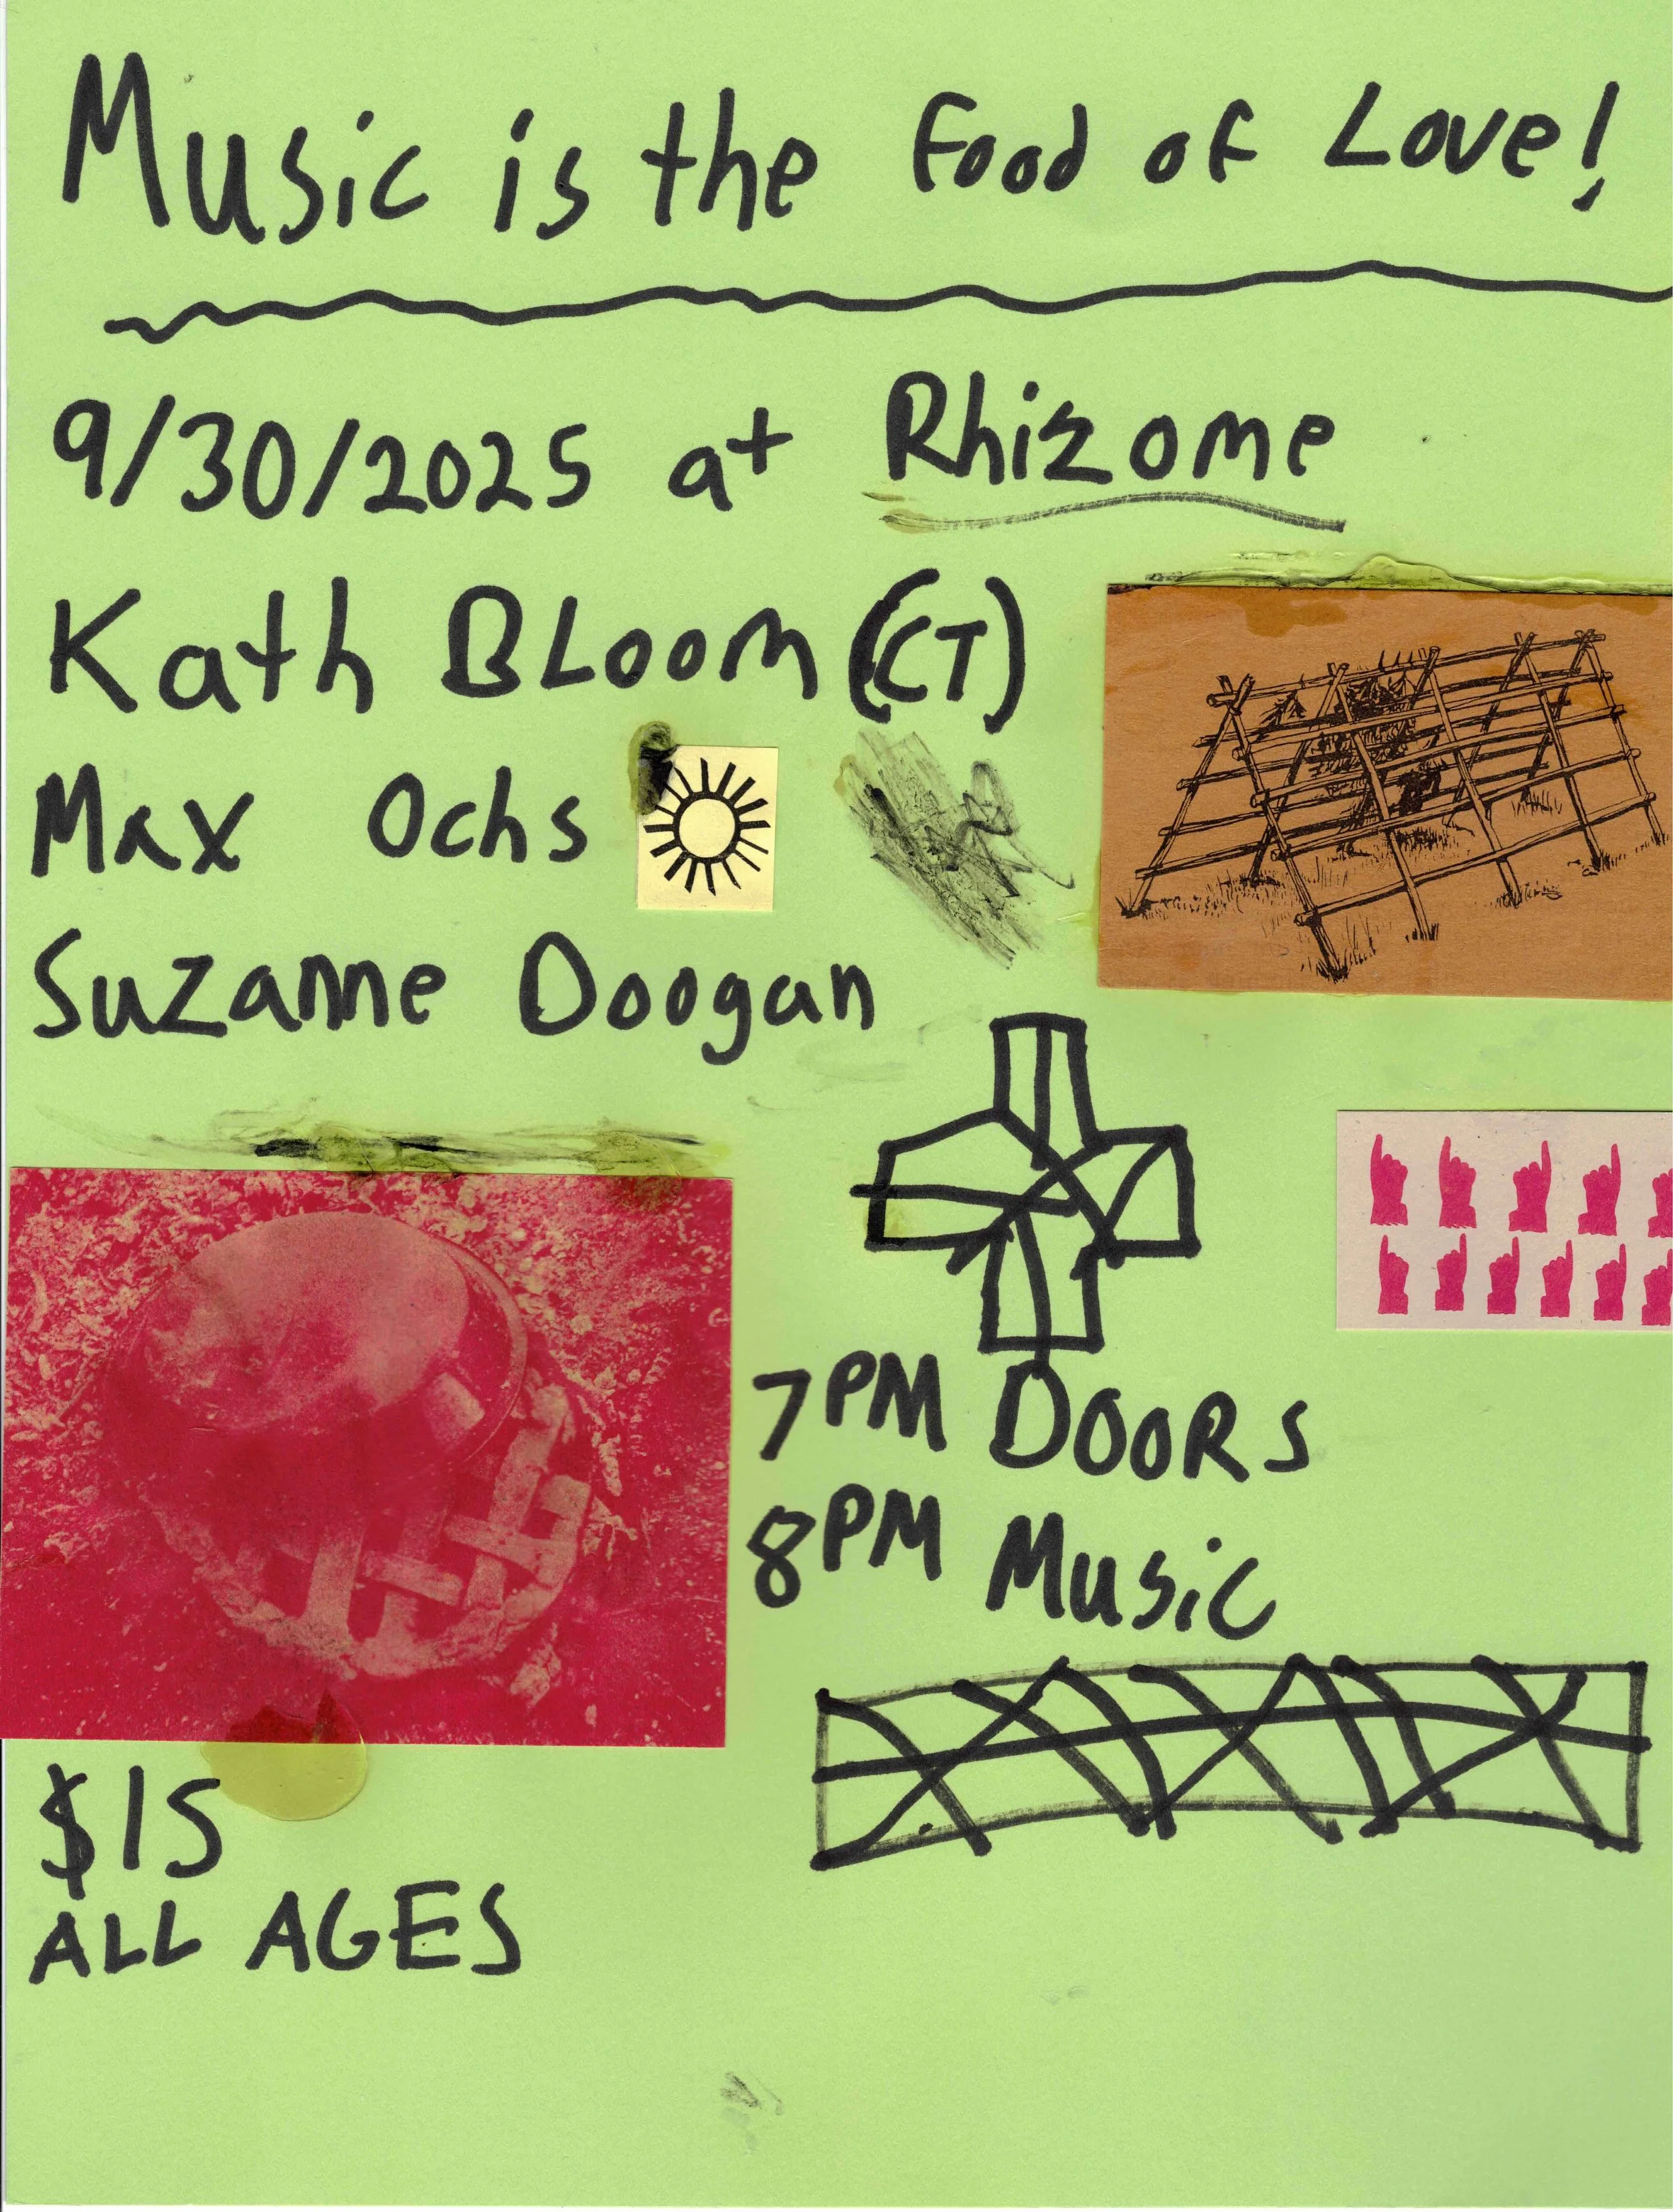 Music is the Food of Love!
9/30/2025 at Rhizome
Kath Bloom (CT)
Max Ochs
Suzanne Doogan
7PM DOORS
8PM Music
$15
ALL AGES